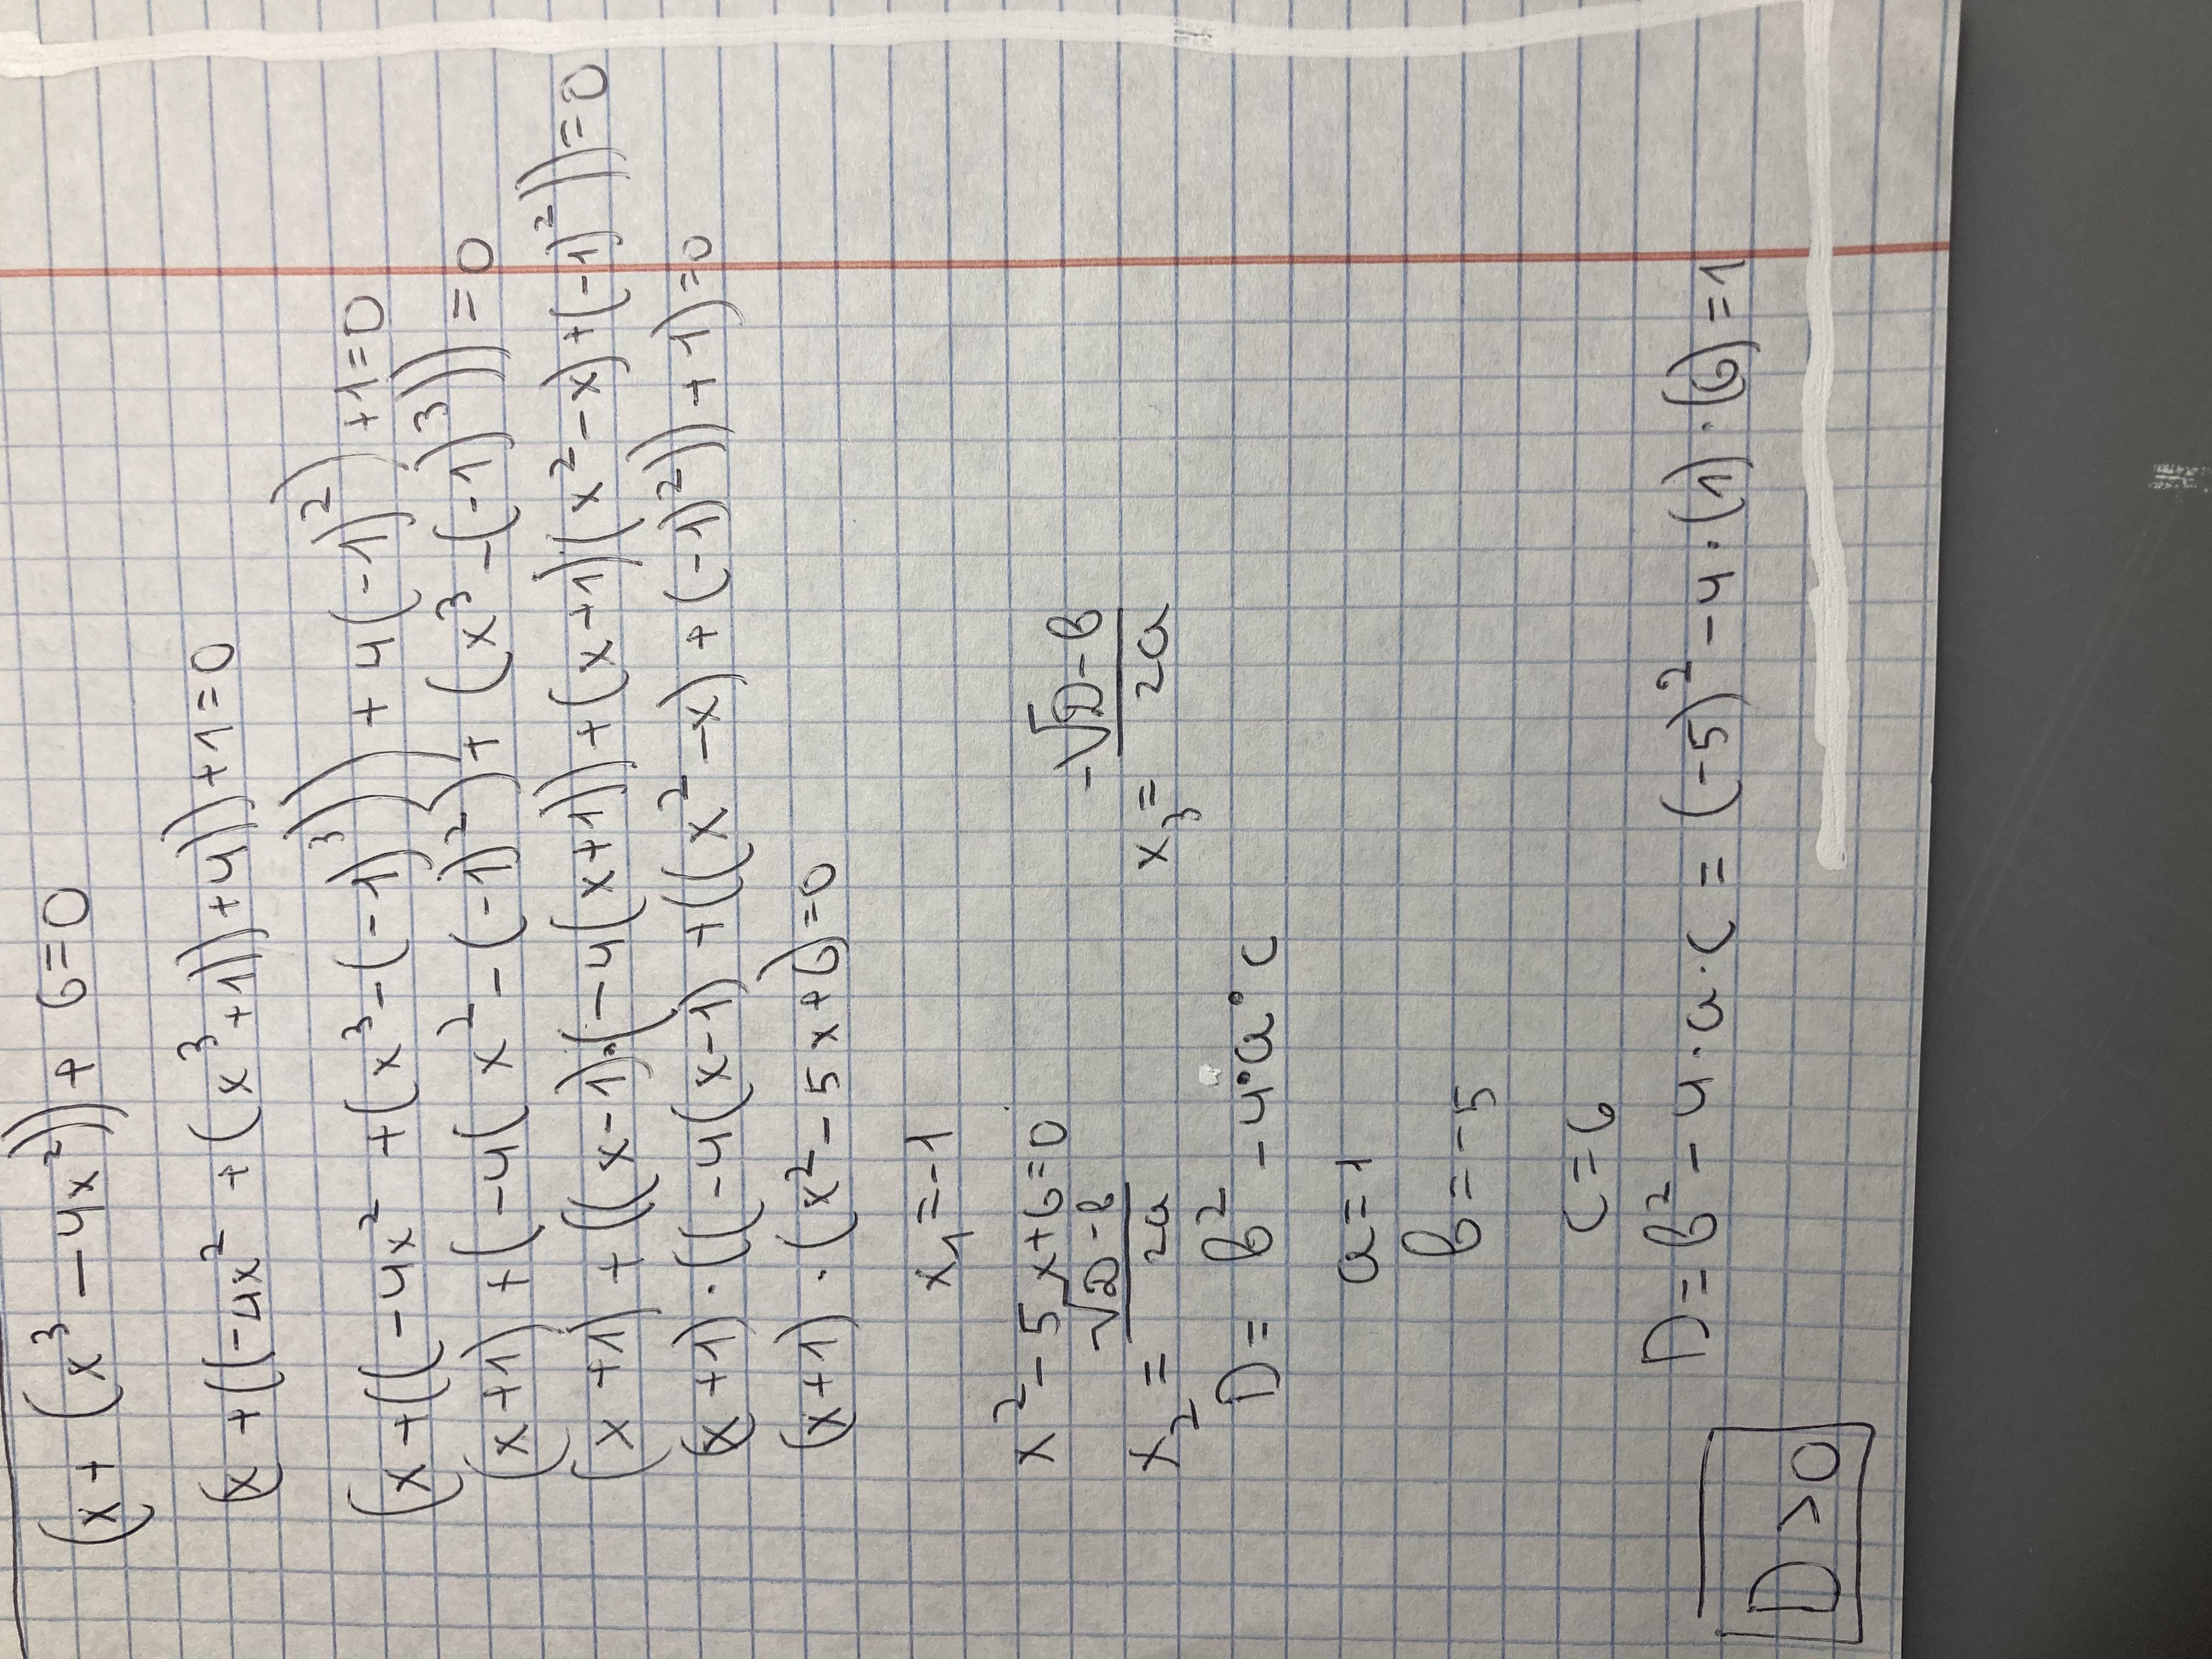 (x + (x³ - 4x²)) + 6=0
(x + ((-4x² + (x³+1))+4))+1=0
(x+((-4x² +(x³-(-1)³))) + 4(-1)²) +1=0
(x+1) +(-4(x²-(-1)²)+(x³-(-1)³))=0
(x+1)+((x-1)·(-4(x+1))+(x+1)(x²-x)+(-1)²))=0
(x+1)·((-4(x-1)+((x²-x)+(-1)²))+1)=0
(x+1)·(x²-5x+6)=0
x₁=-1
x²-5x+6=0
x₂= √D-b / 2a x₃= -√D-b / 2a
D= b² -4·a·c
a=1
b=-5
c=6
D=b²-4·a·c = (-5)²-4·(1)·(6)=1
D>0